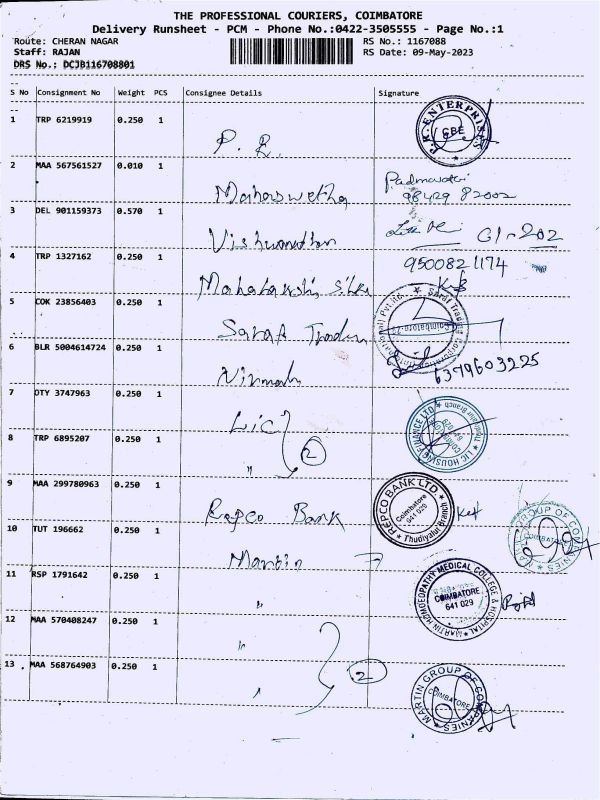 THE PROFESSIONAL COURIERS, COIMBATORE
Delivery Runsheet - PCM - Phone No.:0422-3505555 - Page No.:1
Route: CHERAN NAGAR RS No.: 1167088
Staff: RAJAN RS Date: 09-May-2023
DRS No.: DCJB116708801
S No Consignment No Weight PCS Consignee Details Signature
1 TRP 6219919 0.250 1 P. R. P.K. ENTERPRISES CBE
2 MAA 567561527 0.010 1 Mahaswetha Padmavati
98429 82002
3 DEL 901159373 0.570 1 Vishwanathan G1-202
4 TRP 1327162 0.250 1 Mahalakshmi Silks 9500821174
5 COK 23856403 0.250 1 Saraf Trading Saraf Trading Corporation Coimbatore
6 BLR 5004614724 0.250 1 Nirmala 6379603225
7 OTY 3747963 0.250 1 LIC LIC HOUSING FINANCE LTD Thudiyalur Branch
8 TRP 6895207 0.250 1 " 2
9 MAA 299780963 0.250 1 Repco Bank REPCO BANK LTD Coimbatore 641 029 Thudiyalur Branch
10 TUT 196662 0.250 1 Martin MARTIN GROUP OF COMPANIES COIMBATORE
11 RSP 1791642 0.250 1 " MARTIN HOMOEOPATHY MEDICAL COLLEGE & HOSPITAL COIMBATORE 641 029
12 MAA 570408247 0.250 1 "
13 MAA 568764903 0.250 1 " 2 MARTIN GROUP OF COMPANIES COIMBATORE